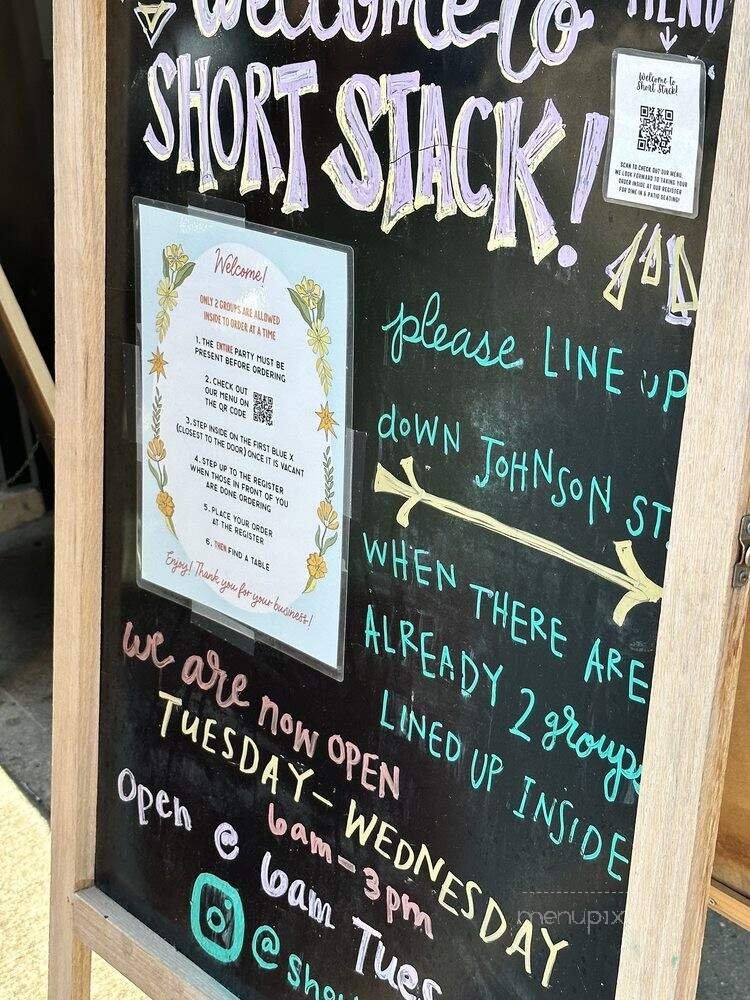 Welcome to
SHORT STACK!
MENU
Welcome to
Short Stack!
SCAN TO CHECK OUT OUR MENU.
WE LOOK FORWARD TO TAKING YOUR
ORDER INSIDE AT OUR REGISTER
FOR DINE IN & PATIO SEATING!
Welcome!
ONLY 2 GROUPS ARE ALLOWED
INSIDE TO ORDER AT A TIME
1. THE ENTIRE PARTY MUST BE
PRESENT BEFORE ORDERING
2. CHECK OUT
OUR MENU ON
THE QR CODE
3. STEP INSIDE ON THE FIRST BLUE X
(CLOSEST TO THE DOOR) ONCE IT IS VACANT
4. STEP UP TO THE REGISTER
WHEN THOSE IN FRONT OF YOU
ARE DONE ORDERING
5. PLACE YOUR ORDER
AT THE REGISTER
6. THEN FIND A TABLE
Enjoy! Thank you for your business!
please LINE UP
dOWN JOHNSON ST.
WHEN THERE ARE
ALREADY 2 groups
LINED UP INSIDE
we are now OPEN
TUESDAY - WEDNESDAY
6am - 3pm
Open @ 6am Tues
@sho
menupix